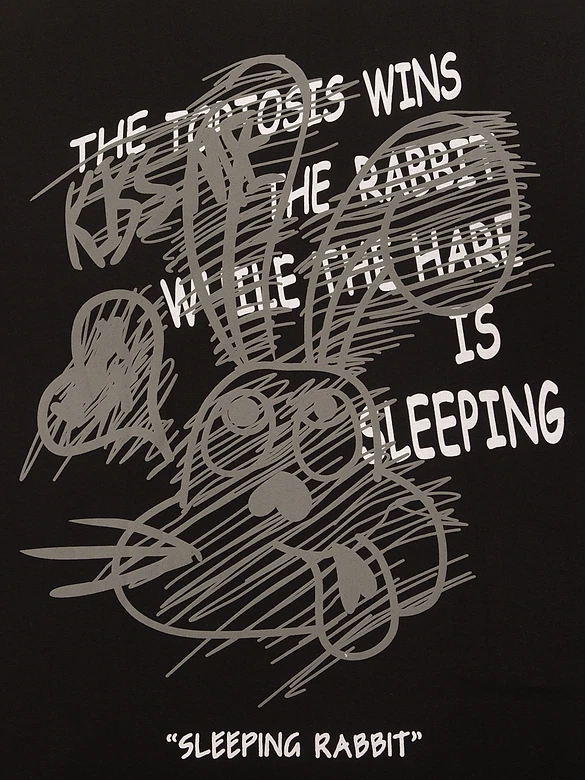 THE TORTOSIS WINS
THE RABBIT
WHILE THE HARE
IS
SLEEPING
"SLEEPING RABBIT"